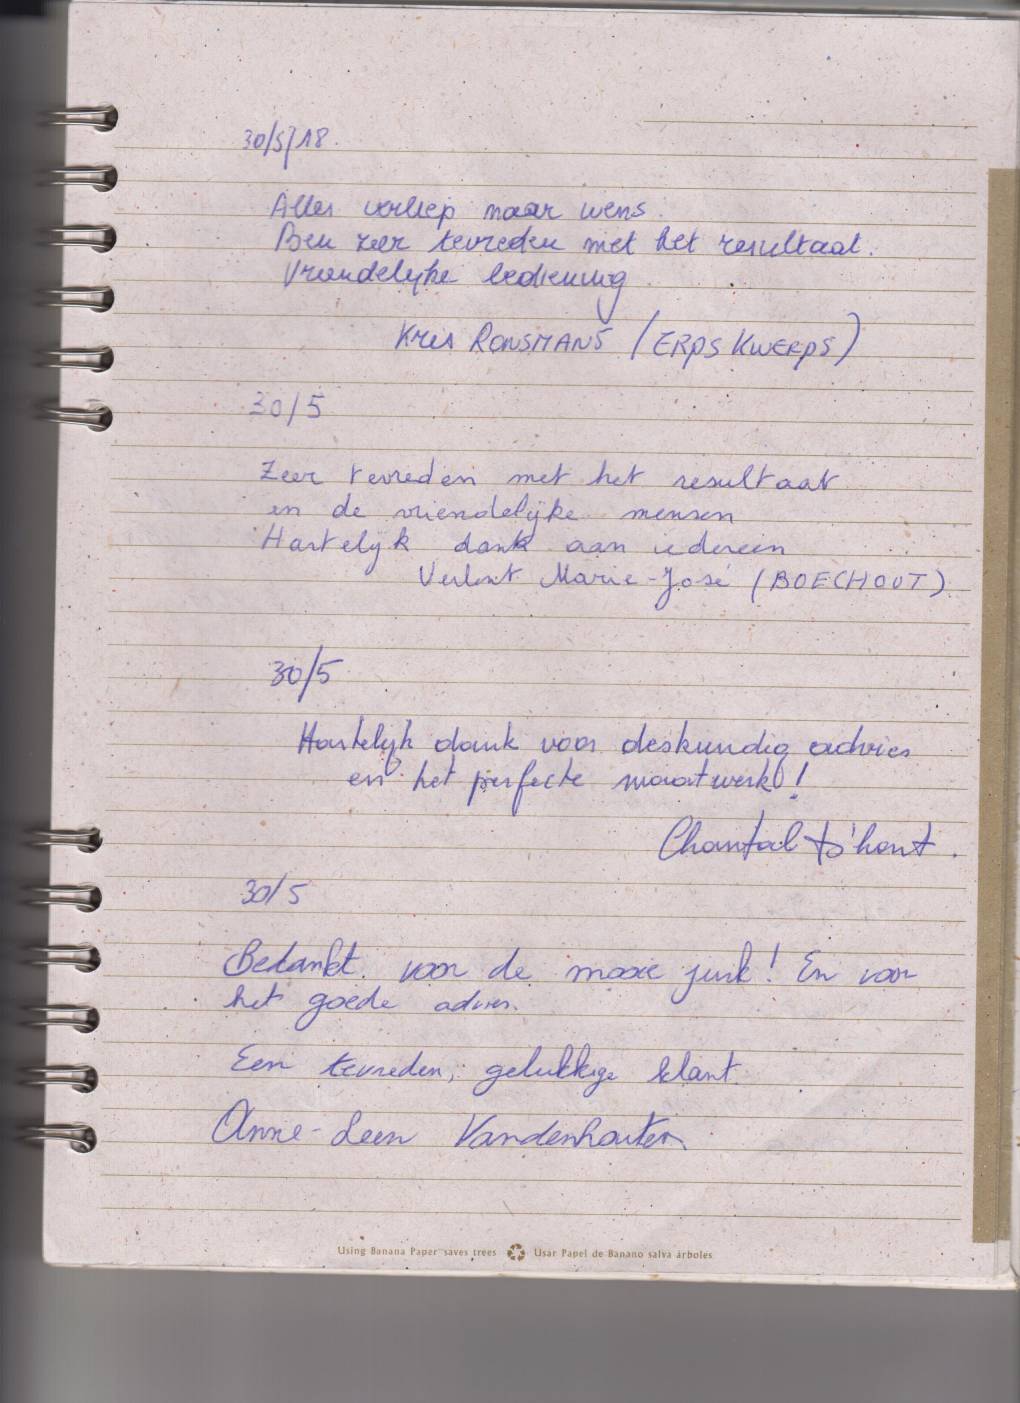 30/5/18.
Alles verliep naar wens.
Ben zeer tevreden met het resultaat.
Vriendelijke bediening
Kris RONSMANS (ERPS KWERPS)
30/5
Zeer tevreden met het resultaat
en de vriendelijke mensen
Hartelijk dank aan iedereen
Marie-José (BOECHOUT)
30/5
Hartelijk dank voor deskundig advies
en het perfecte maatwerk!
Chantal
30/5
Bedankt voor de mooie jurk! En voor
het goede advies.
Een tevreden, gelukkige klant.
Anne-Leen Vandenhouten
Using Banana Paper™ saves trees Usar Papel de Banano salva árboles